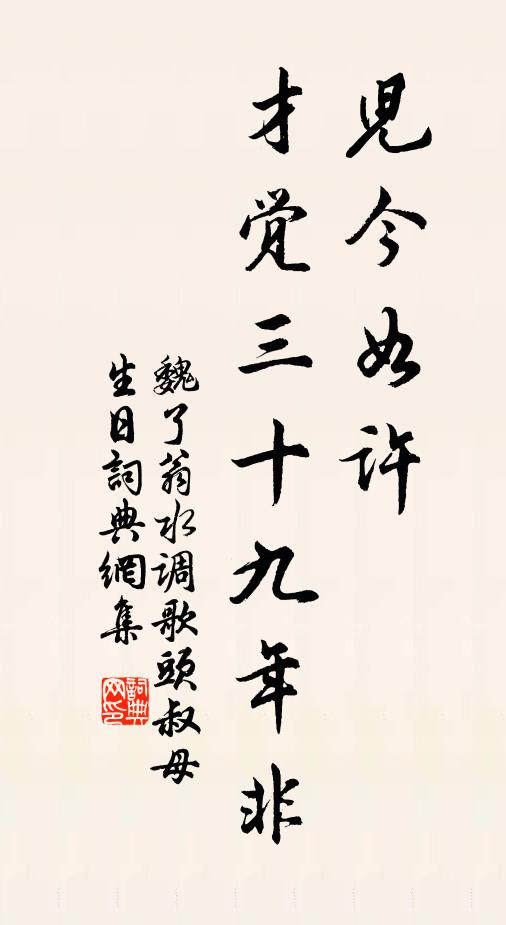 児今如许
才覚三十九年非
魏了翁水调歌頭叔母
生日詞典網集
詞典网印